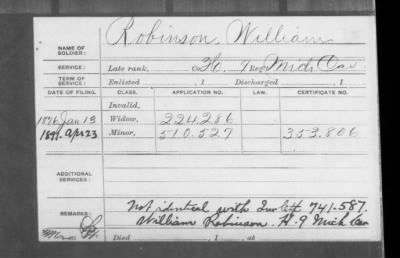 Robinson, William
NAME OF SOLDIER:
SERVICE: Late rank, Co H. 7 Reg. Mich Cav
TERM OF SERVICE: Enlisted , 1 Discharged , 1
DATE OF FILING. CLASS. APPLICATION NO. LAW. CERTIFICATE NO.
Invalid,
1876 Jan 13 Widow, 224,286
Apr 23 Minor, 510,527 353,806
ADDITIONAL SERVICES:
REMARKS: Not identical with 741.587.
William Robinson. H. 9 Mich Cav
Died , 1 , at